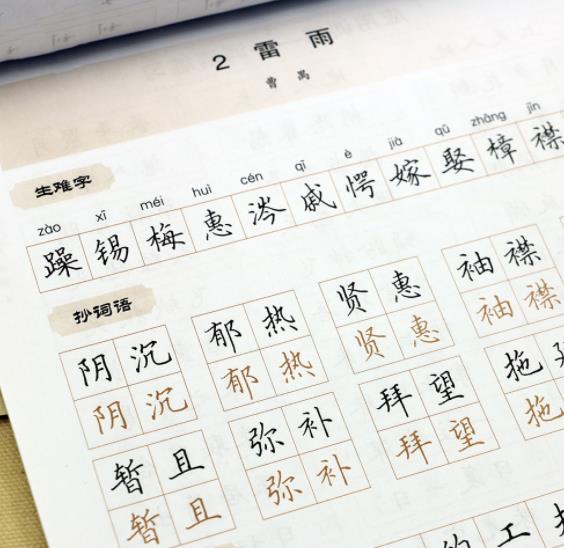 2 雷雨
曹禺
生难字
zào xī méi huì cén qī è jià qǔ zhāng jīn
躁 锡 梅 惠 涔 戚 愕 嫁 娶 樟 襟
抄词语
阴沉 郁热 贤惠 袖襟
阴沉 郁热 贤惠 袖襟
暂且 弥补 拜望 拖
暂且 弥补 拜望 拖
的 工